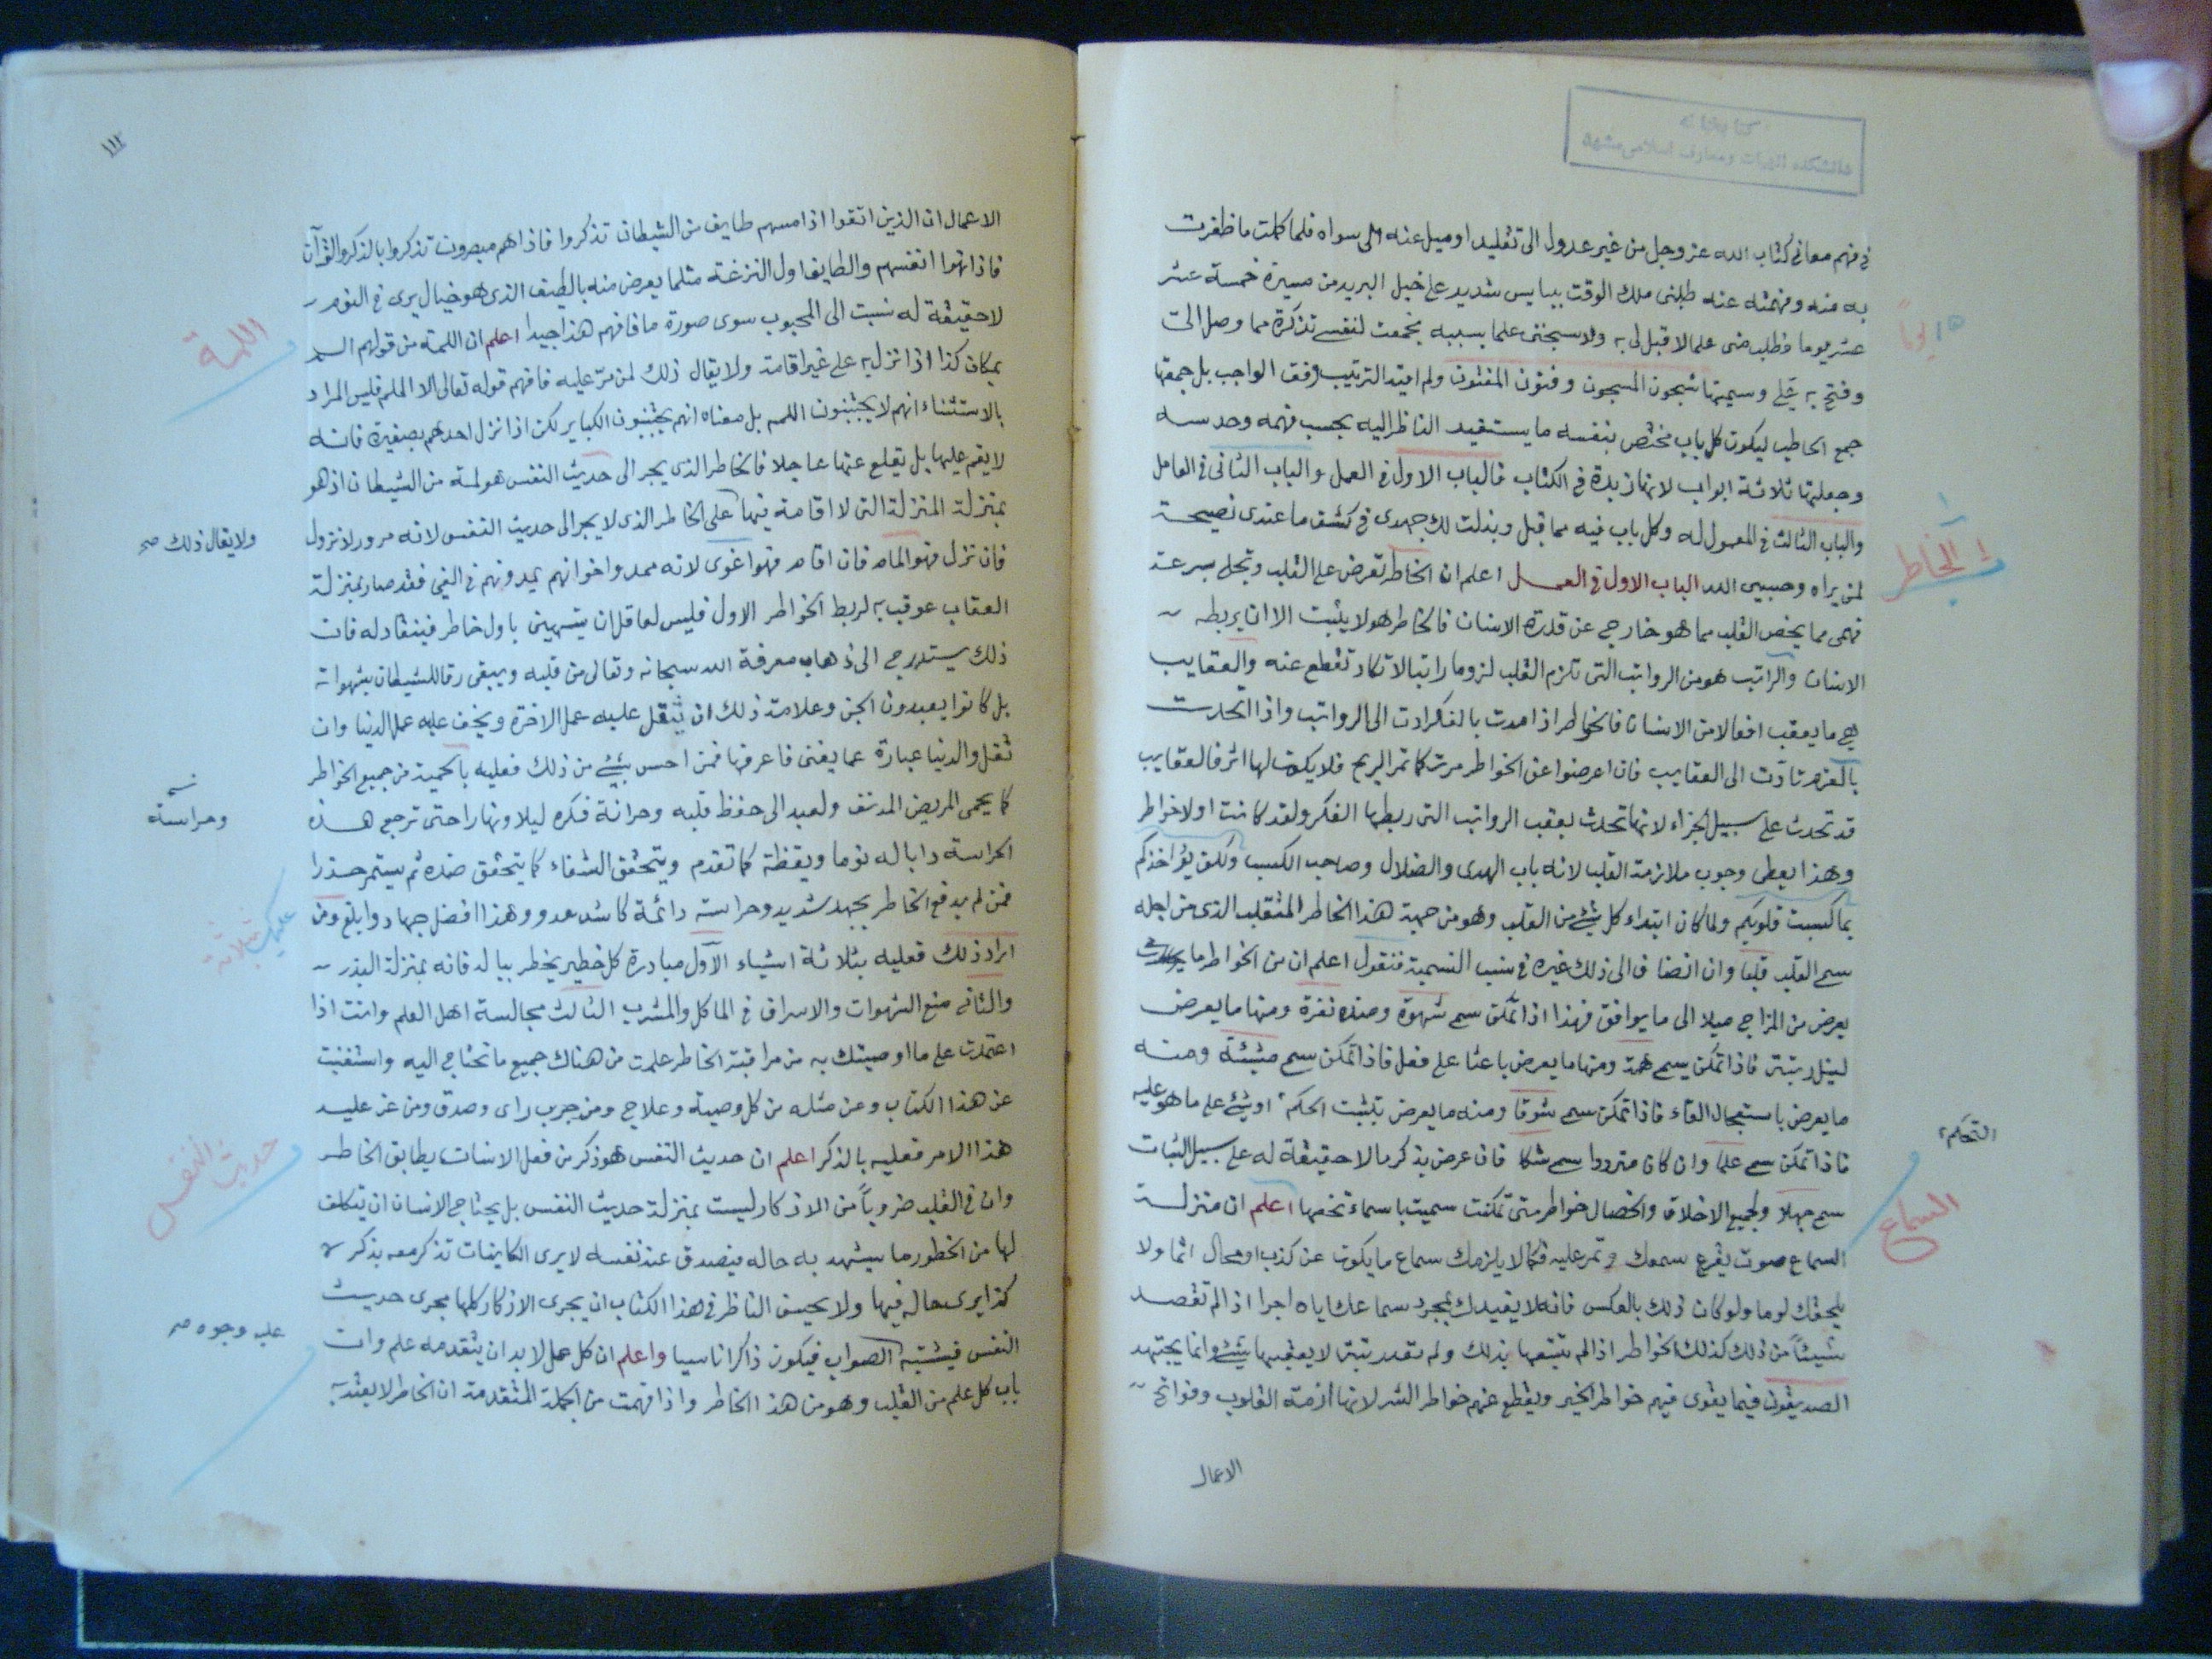 في فهم معاني كتاب الله عز وجل من غير عدول الى تقليد او ميل عنه الى سواه فلما كملت ما ظفرت
به منه وفهمته عنه طلبنى ملك الوقت شديد على خيل البريد من مسيرة خمسة عشر
عشر يوما وطلب منى علما لا قبل لى به ولا سبحنى علما بسببه فجمعت لنفسى تذكرة مما وصل الى
وفتح به على وسميتها شجون المسجون وفنون المفتون ولم اقيد الترتيب وفق الواجب بل جمعتها
جمع الحاطب ليكون كل باب مختص بنفسه ما يستفيد الناظر اليه بحسب فهمه وحدسه
وجعلتها ثلاثة ابواب لانها زبدة فى الكتاب فالباب الاول فى العمل والباب الثانى فى العامل
والباب الثالث فى المعمول له وكل باب فيه مما قبل وبذلت لك جهدى فى كشف ما عندى نصيحة
لمن يراه وحسبى الله الباب الاول فى العمل اعلم ان الخاطر تعرض على القلب وتجلى بسرعة
فهى مما يخص القلب مما هو خارج عن قدرة الانسان فالخاطر هو لا يثبت الا ان يربطه
الانسان والراتب هو من الرواتب التى تلزم القلب لزوما راتبا لا تكاد تقطع عنه والعقايب
هى ما يعقب افعالا من الانسان فالخواطر اذا امدت بالفكر ادت الى الرواتب واذا اتحدت
بالعزم تادت الى العقايب فان اعرضوا عن الخواطر مرت كما تمر الريح فلا يكون لها اثر فالعقايب
قد تحدث على سبيل الجزاء لانها تحدث بعقب الرواتب التى ربطها الفكر ولقد كانت اولا خواطر
وهذا يعطى وجوب ملازمة القلب لانه باب الهدى والضلال وصاحب الكسب ولكن يؤاخذكم
بما كسبت قلوبكم ولما كان ابتداء كل شئ من القلب وهو من جهة هذا الخاطر المتقلب الذى من اجله
سمى القلب قلبا وان انضاف الى ذلك غيره فى سبب التسمية فنقول اعلم ان من الخواطر ما
يعرض من المزاج ميلا الى ما يوافق فهذا اذا تمكن سمى شهوة وضده نفرة ومنها ما يعرض
لنيل رتبة فاذا تمكن يسمى همة ومنها ما يعرض باعثا على فعل فاذا تمكن سمى مشيئة ومنه
ما يعرض باستعجال القاء فاذا تمكن سمى شوقا ومنه ما يعرض بتثبت الحكم او شئ على ما هو عليه
فاذا تمكن سمى علما وان كان مترددا سمى شكا فان عرض بذكر ما لا حقيقة له على سبيل الثبات
سمى جهلا ولجميع الاخلاق والخصال خواطر متى تمكنت سميت باسماء تخصها اعلم ان منزلة
السماع صوت يقرع سمعك وتمر عليه فكما لا يلزمك سماع ما يكون عن كذب او محال اثما ولا
يلحقك لوما ولو كان ذلك بالعكس فانه لا يفيدك بمجرد سماعك اياه اجرا اذا لم تقصد
شيئا من ذلك كذلك الخواطر اذا لم تتبعها بذلك ولم تعد رتبتها لا يعقبها شئ وانما يجتهد
الصديقون فيما يقوى فيهم خواطر الخير ويقطع عنهم خواطر الشر لانها ازمة القلوب وفواتح
الاعمال
١٥ يوما
الخاطر
التحكم
السماع
١١٢
الاعمال ان الذين اتقوا اذا مسهم طايف من الشيطان تذكروا فاذا هم مبصرون تذكروا بالذكر والقرآن
فاذا انفسهم والطايف اول النزغة مثلما يعرض منه بالطيف الذى هو خيال يرى فى النوم
لا حقيقة له نسبت الى المحبوب سوى صورة ما فافهم هذا جيدا اعلم ان اللمة من قولهم الم
بمكان كذا اذا نزل به على غير اقامة ولا يقال ذلك لمن مر عليه فافهم قوله تعالى الا اللمم فليس المراد
بالاستثناء انهم لا يجتنبون اللمم بل معناه انهم يجتنبون الكباير لكن اذا نزل احدهم بصغيرة فانه
لا يقيم عليها بل يقلع عنها عاجلا فالخاطر الذى يجر الى حديث النفس هو لمة من الشيطان اذ هو
بمنزلة المنزلة التى لا اقامة فيها على الخاطر الذى لا يجر الى حديث النفس لانه مرور لا نزول
فان نزل فهو المام فان اقام فهو اغوى لانه ممد واخوانهم يمدونهم فى الغى فقد صار بمنزلة
العقاب عوقب به لربط الخواطر الاول فليس لعاقل ان يستهين باول خاطر فينقاد له فان
ذلك يستدرج الى ذهاب معرفة الله سبحانه وتعالى من قلبه ويبقى رقا للشيطان بشهواته
بل كانوا يعبدون الجن وعلامة ذلك ان يثقل عليه عمل الاخرة ويخف عليه عمل الدنيا وان
ثقل والدنيا عبارة عما يفنى فاعرفها فمن احس بشئ من ذلك فعليه بالحمية من جميع الخواطر
كما يحمى المريض المدنف ولعبد الى حفظ قلبه وحرانة فكره ليلا ونهارا حتى ترجع هذه
الحراسة دابا له نوما ويقظة كما تقدم ويتحقق الشفاء كما يتحقق ضده ثم يستمر حذرا
فمن لم يدفع الخاطر بجهد شديد وحراسة دائمة كاشد عدو وهذا افضل جهاد وابلغ ومن
اراد ذلك فعليه بثلاثة اشياء الاول مبادرة كل خطير يخطر بباله فانه بمنزلة البذر
والثانى منع الشهوات والاسراف فى الماكل والمشرب الثالث مجالسة اهل العلم وانت اذا
اعتمدت على ما اوصيتك به من مراقبة الخاطر علمت من هناك جميع ما تحتاج اليه واستغنيت
عن هذا الكتاب وعن مثله من كل وصية وعلاج ومن جرب راى وصدق ومن عز عليه
هذا الامر فعليه بالذكر اعلم ان حديث النفس هو ذكر من فعل الانسان يطابق الخاطر
وان فى القلب ضروبا من الاذكار ليست بمنزلة حديث النفس بل يحتاج الانسان ان يتكلف
لها من الخطور ما يشهد به حاله فيصدق عند نفسه لا يرى الكاينات تذكر معه بذكر
كذا يرى حاله فيها ولا يحسن الناظر فى هذا الكتاب ان يجرى الاذكار كلها مجرى حديث
النفس فيشتبه الصواب فيكون ذاكرا ناسيا واعلم ان كل عمل لا بد ان يتقدمه علم وان
باب كل علم من القلب وهو من هذا الخاطر واذا فهمت من الجملة المتقدمة ان الخاطر لا يعتد به
اللمة
ولا يقال ذلك صح
وحراسة
عليك بثلاثة
حديث النفس
عليه وجوه صح